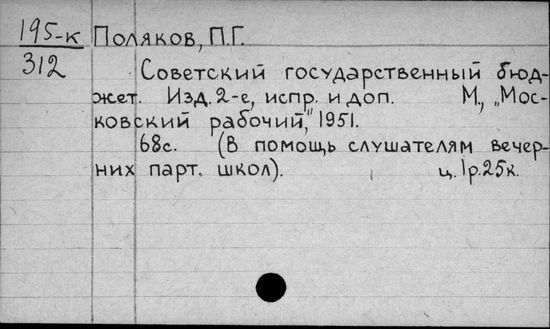 195-к Поляков, П.Г.
312
Советский государственный бюд-
жет. Изд. 2-е, испр. и доп. М., „Мос-
ковский рабочий," 1951.
68с. (В помощь слушателям вечер-
них парт. школ). ц. 1р.25к.